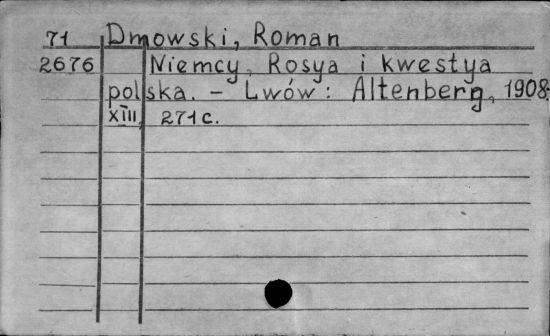 71 Dmowski, Roman
2676 Niemcy, Rosya i kwestya
polska. - Lwów: Altenberg, 1908;
XIII, 271 c.